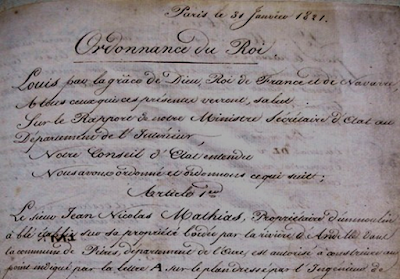 Paris le 31 Janvier 1821.
Ordonnance du Roi
Louis par la grâce de Dieu, Roi de France et de Navarre
A tous ceux qui ces présentes verront, salut.
Sur le Rapport de notre Ministre Secrétaire d'Etat au
Département de l'Intérieur,
Notre Conseil d'Etat entendu
Nous avons ordonné et ordonnons ce qui suit;
Article 1er
Le sieur Jean Nicolas Mathias, Propriétaire d'un moulin
à blé établi sur sa propriété bordée par la rivière d'Andelle dans
la commune de Pitres, département de l'Eure, est autorisé à construire au
point indiqué par la lettre A sur le plan dressé par l'Ingénieur de